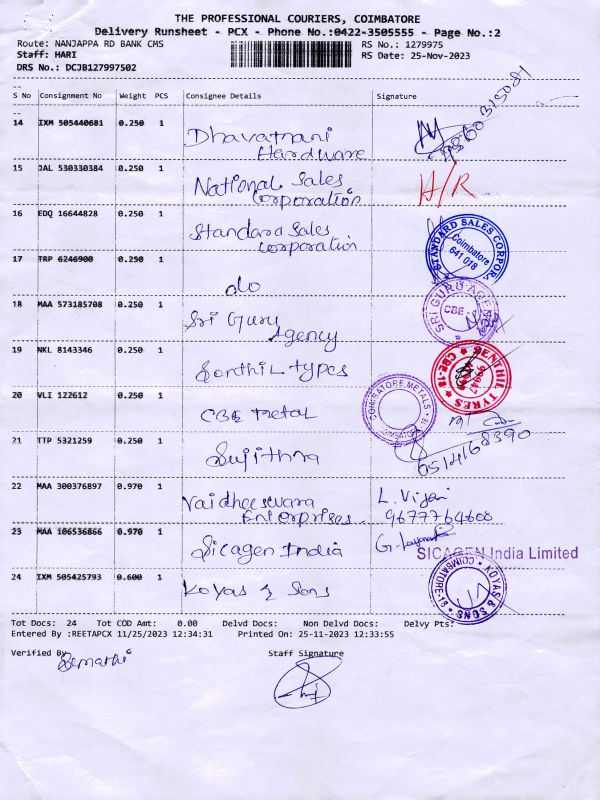 THE PROFESSIONAL COURIERS, COIMBATORE
Delivery Runsheet - PCX - Phone No.:0422-3505555 - Page No.:2
Route: NANJAPPA RD BANK CMS RS No.: 1279975
Staff: HARI RS Date: 25-Nov-2023
DRS No.: DCJB127997502
S No Consignment No Weight PCS Consignee Details Signature
14 IXM 505440681 0.250 1 Dhavatmani
Hardware
15 JAL 530330384 0.250 1 National Sales
Corporation H/R
16 EDQ 16644828 0.250 1 Standard Sales
Corporation
STANDARD SALES CORPOR
Coimbatore
641 018
17 TRP 6246900 0.250 1 do
18 MAA 573185708 0.250 1 Sri Guru
Agency
SRI GURU AGEN
CBE
19 NKL 8143346 0.250 1 Senthil types
SENTHIL TYRES
CBE-18
20 VLI 122612 0.250 1 CBE Metal
COIMBATORE METALS
21 TTP 5321259 0.250 1 Sujithra
22 MAA 300376897 0.970 1 Vaidheeswara
Enterprises. L. Vijai
9677764600
23 MAA 106536866 0.970 1 Sicagen India
SICAGEN India Limited
24 IXM 505425793 0.600 1 Koyas & Sons
KOYAS & SONS
COIMBATORE-18
Tot Docs: 24 Tot COD Amt: 0.00 Delvd Docs: Non Delvd Docs: Delvy Pts:
Entered By :REETAPCX 11/25/2023 12:34:31 Printed On: 25-11-2023 12:33:55
Verified By Staff Signature